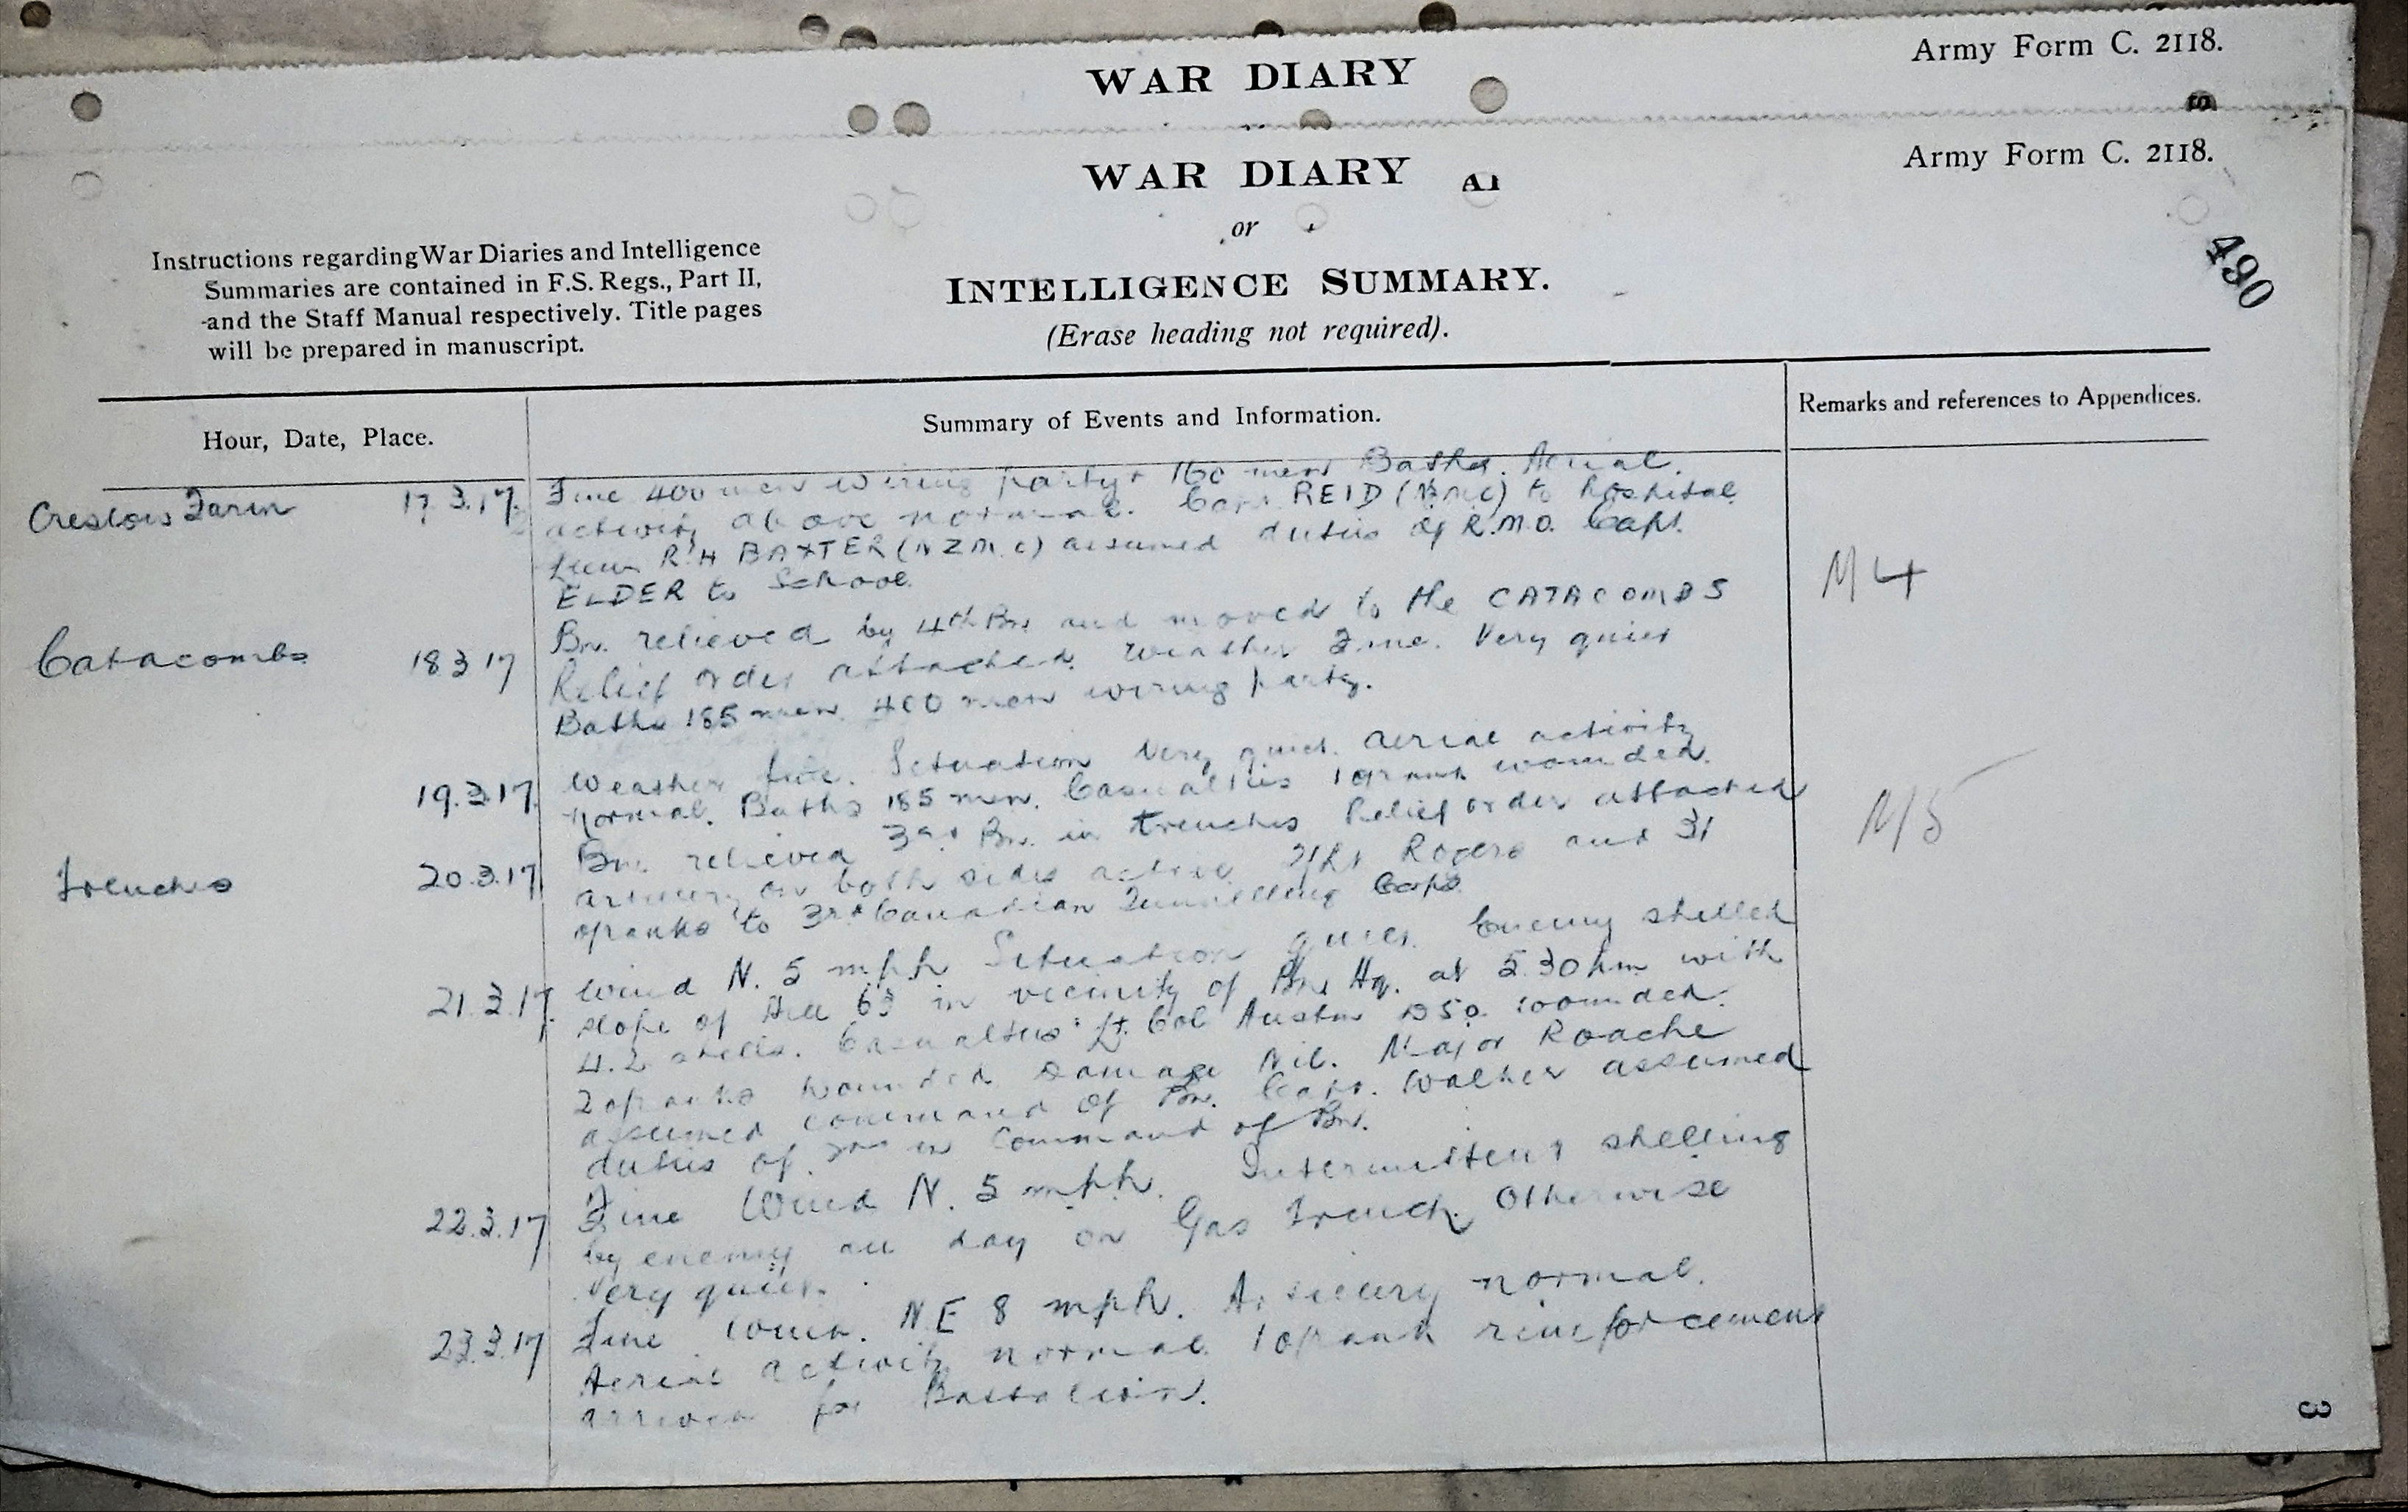 WAR DIARY
Army Form C. 2118.
WAR DIARY
Army Form C. 2118.
or
INTELLIGENCE SUMMARY.
(Erase heading not required).
490
Instructions regarding War Diaries and Intelligence
Summaries are contained in F.S. Regs., Part II,
and the Staff Manual respectively. Title pages
will be prepared in manuscript.
Hour, Date, Place.
Summary of Events and Information.
Remarks and references to Appendices.
Creslow Farm 17.3.17 Fine 400 men wiring party + 160 men Baths. Aerial
activity above normal. Capt. REID (NZMC) to hospital
R.H BAXTER (NZMC) assumed duties of R.M.O. Capt.
ELDER to School.
Catacombs 18 3 17 Bn. relieved by 4th Bn and moved to the CATACOMBS
M4
Relief order attached. Weather Fine. Very quiet
Baths 185 men. 400 men wiring party.
19.3.17. Weather fine. Situation very quiet. Aerial activity
normal. Baths 185 men. Casualties 1 oprank wounded.
Trenches 20.3.17 Bn. relieved 3rd Bn. in trenches Relief order attached
M5
artillery on both sides active 2/Lt Rogers and 31
opranks to 3rd Canadian Tunnelling Corps.
21.3.17. Wind N. 5 mph Situation quiet. Enemy shelled
slope of Hill 63 in vicinity of Bn Hq. at 5.30 pm with
4.2 shells. Casualties Lt. Col Austin DSO. wounded.
2 opranks wounded Damage Nil. Major Roache
assumed command of Bn. Capt. Walker assumed
duties of 2nd in Command of Bn.
22.3.17 Fine Wind N. 5 mph. Intermittent shelling
by enemy all day on Gas Trench. Otherwise
very quiet.
23.3.17 Fine Wind. NE 8 mph. Artillery normal.
Aerial activity normal. 1 oprank reinforcement
arrived for Battalion.
3